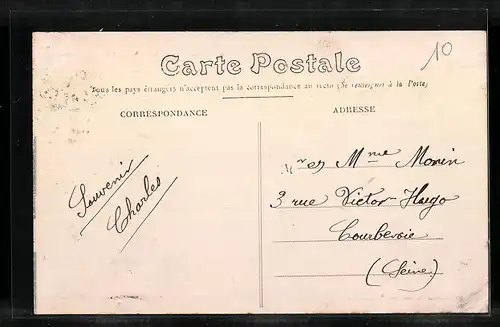 Carte Postale
10
Tous les pays étrangers n'acceptent pas la correspondance au recto (Se renseigner à la Poste)
CORRESPONDANCE
ADRESSE
Souvenir
Charles
Mr et Mme Morin
3 rue Victor Hugo
Courbevoie
(Seine)